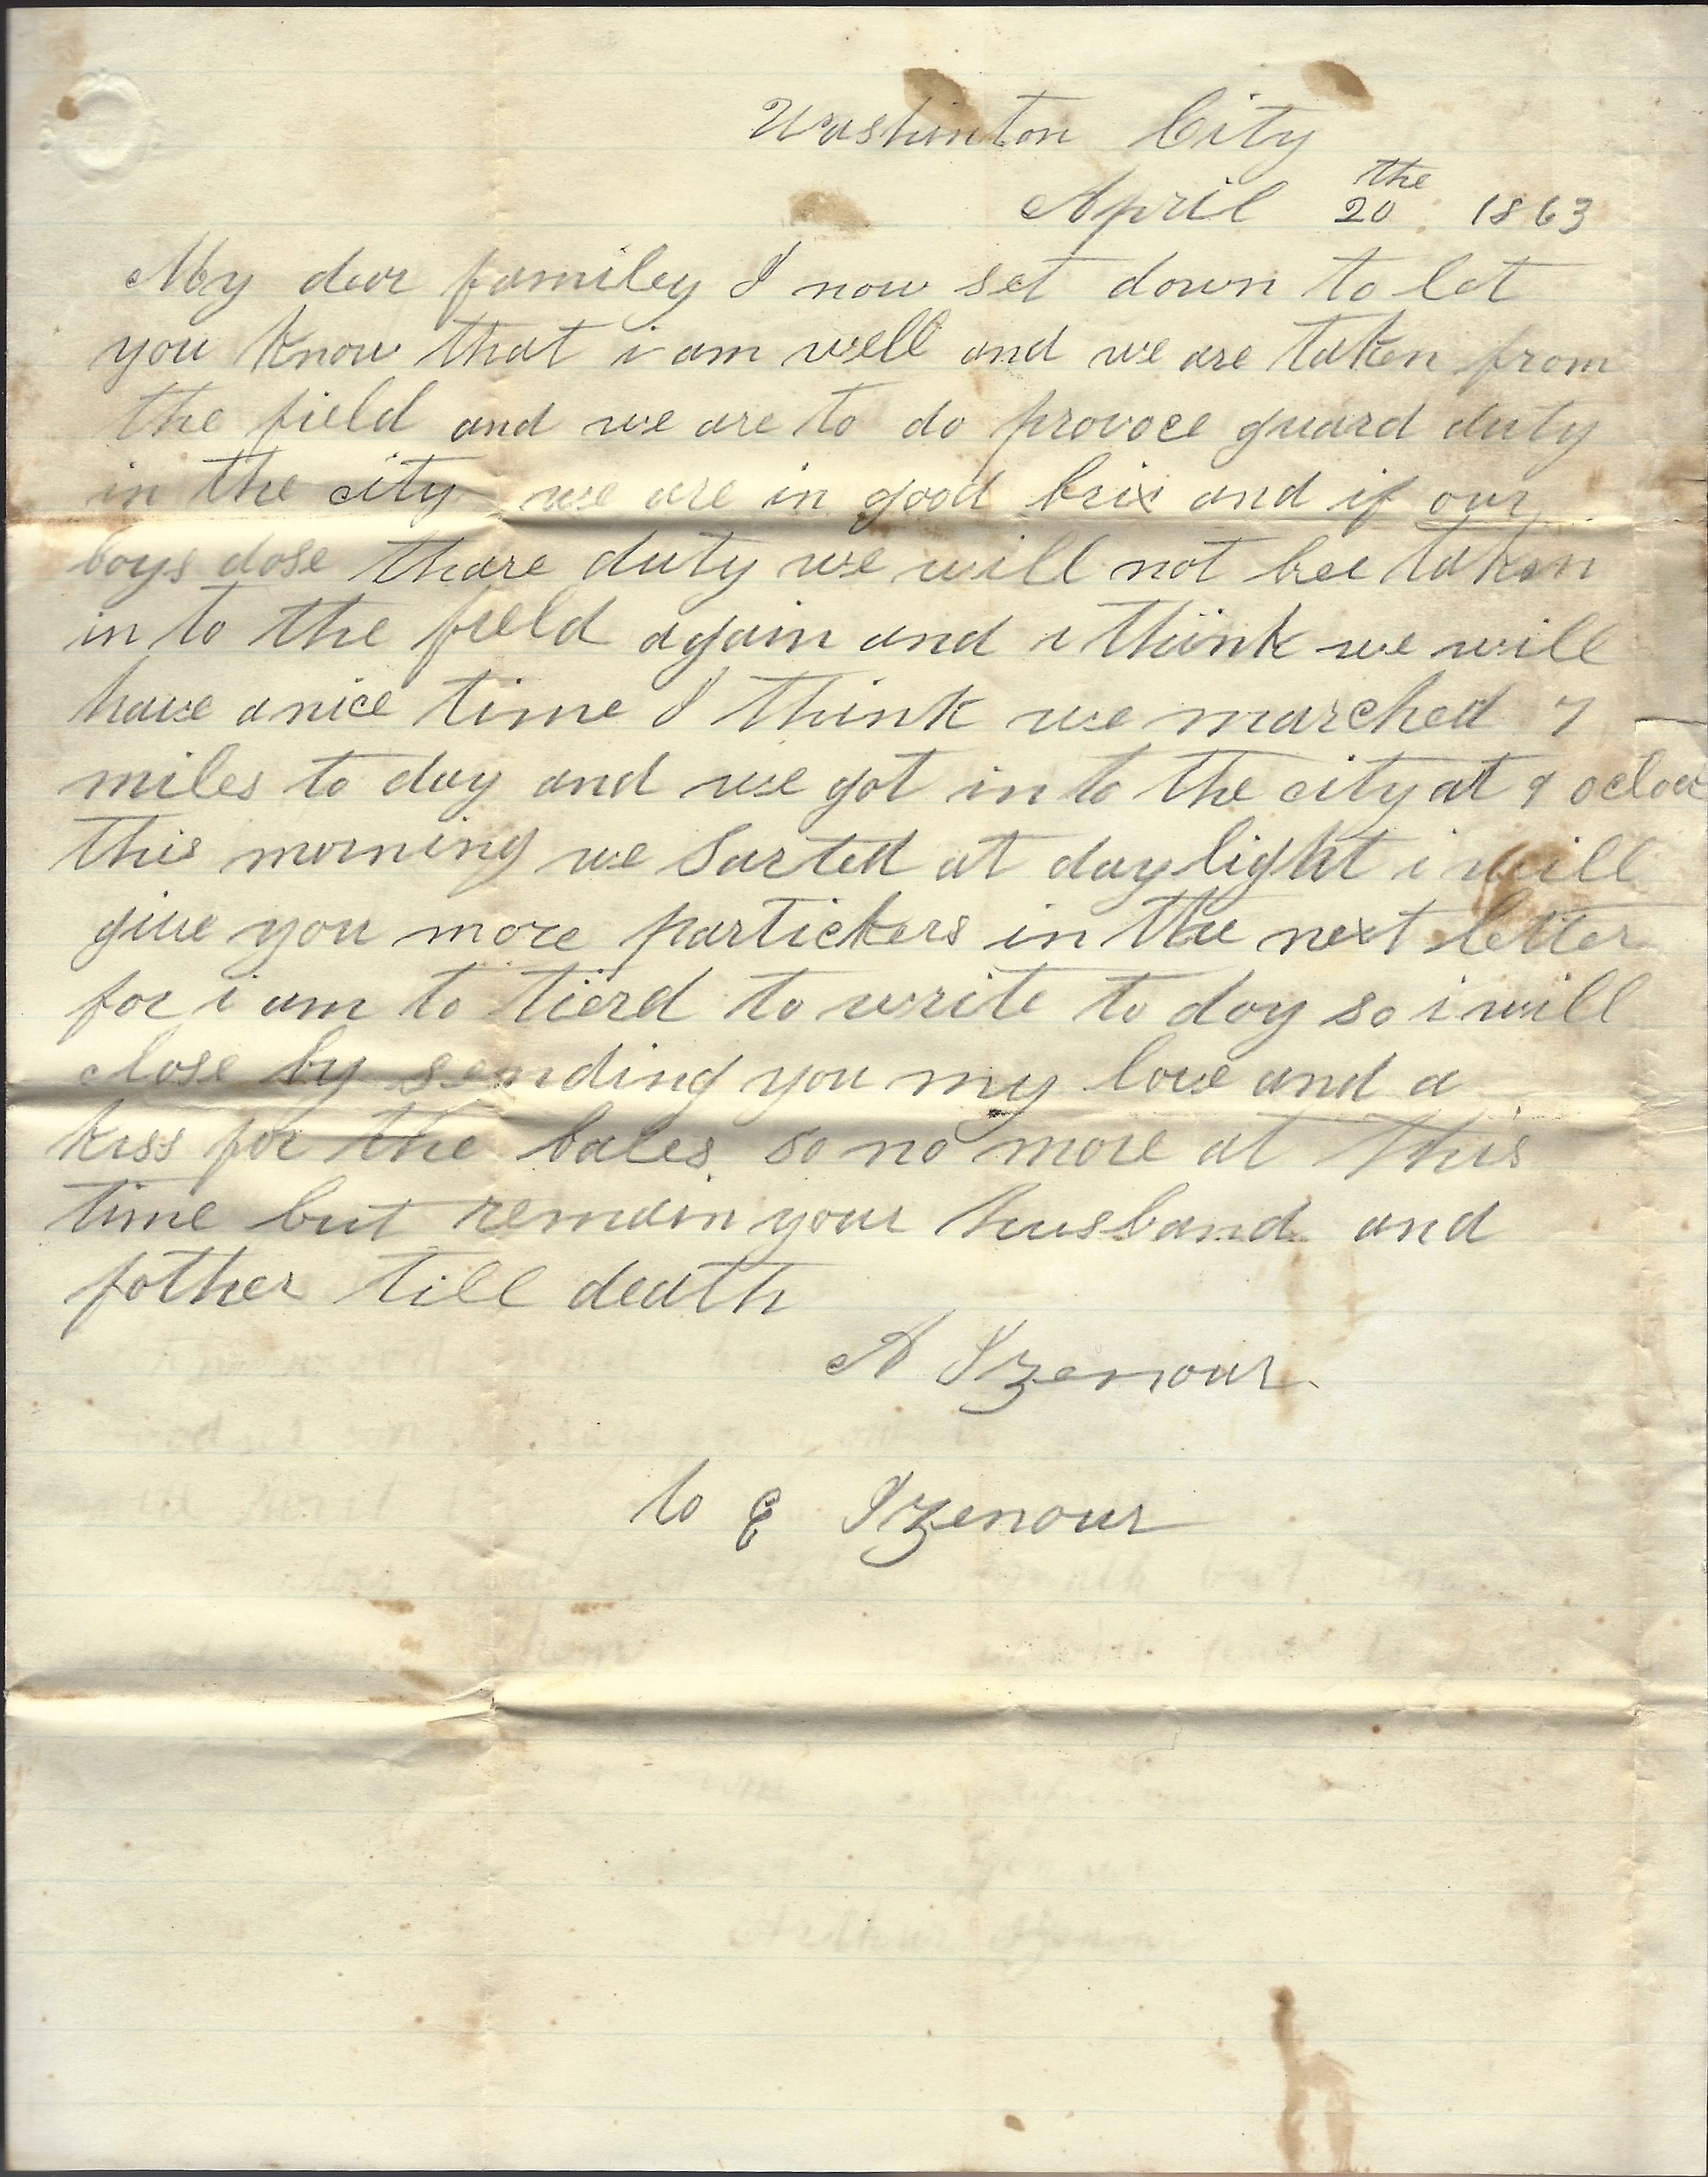 Washinton City
April 20 the 1863
My dear familey I now set down to let
you know that i am well and we are taken from
the field and we are to do provoce guard duty
in the city we are in good brix and if our
boys dose thare duty we will not bee taken
in to the field again and i think we will
have a nice time I think we marched 7
miles to day and we got in to the city at 9 oclock
this morning we Sarted at day light i will
give you more partickers in the next letter
for i am to tierd to write to day so i will
close by sending you my love and a
kiss for the babes so no more at this
time but remain your husband and
father till death
A Izenour
to E Izenour